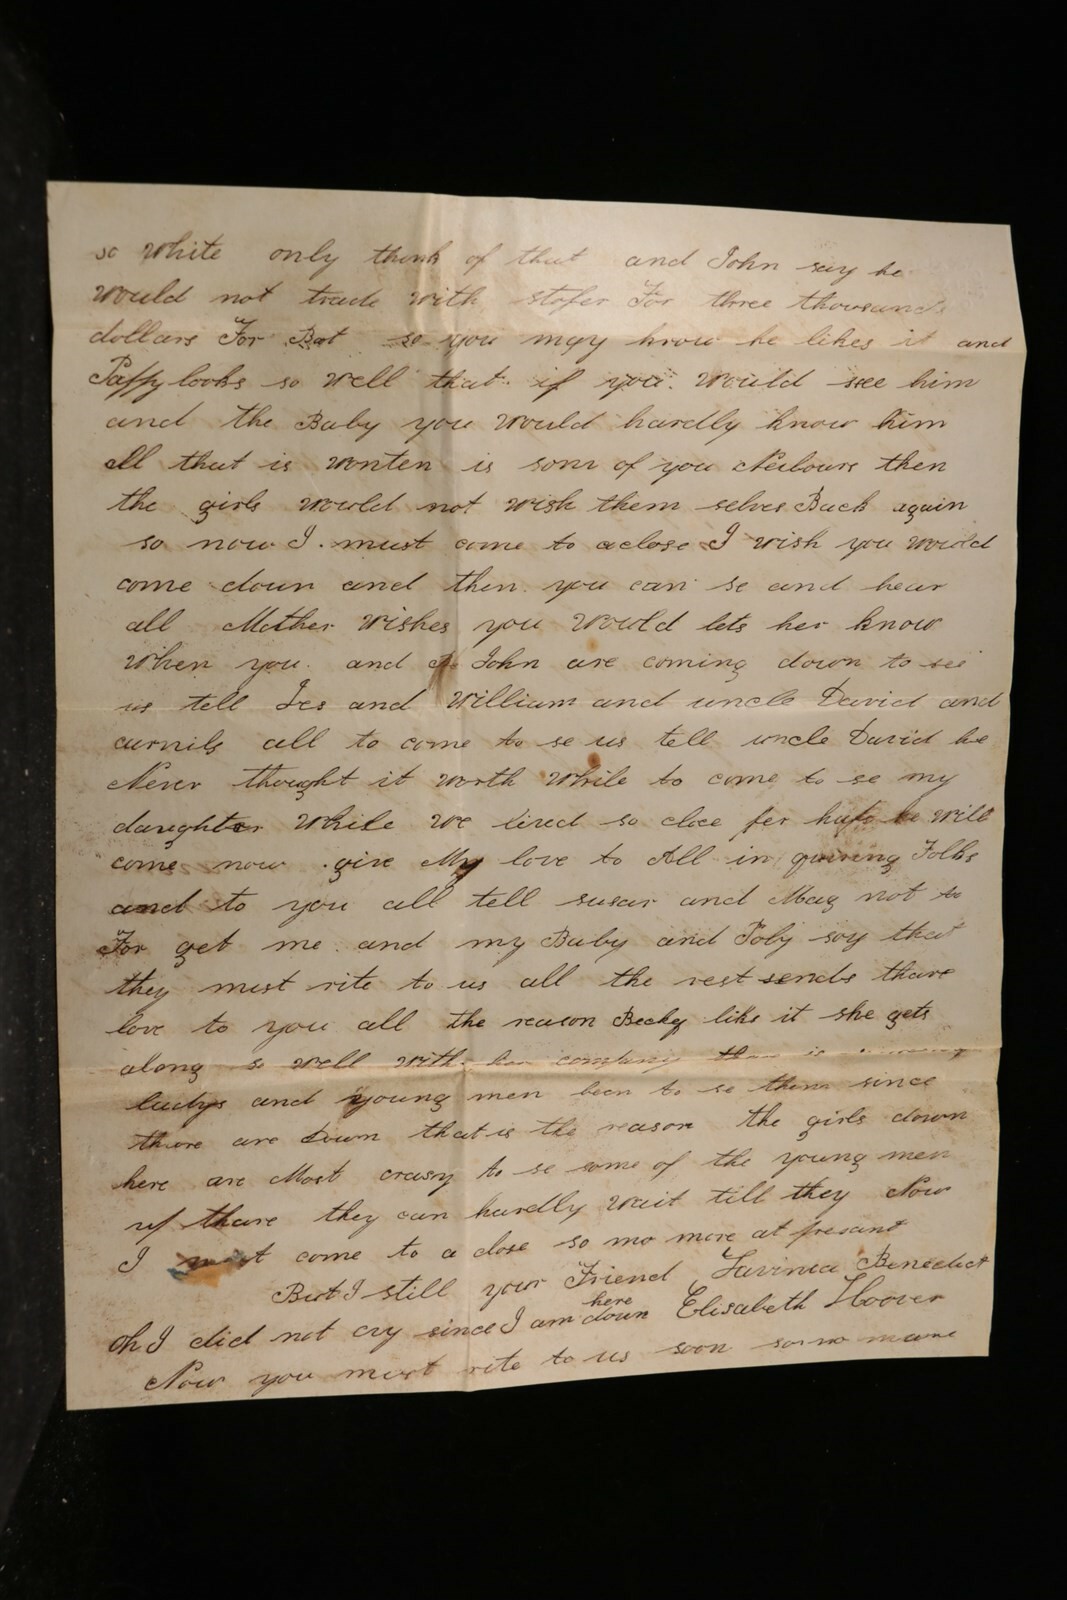 so white only think of that and John say he
would not trade with stofer For three thousands
dollars For Bot so you may know he likes it and
Paffy looks so well that if you would see him
and the Baby you would hardly know him
All that is wonten is som of you Neibours then
the girls would not wish them selves Back again
so now I must come to aclose I wish you would
come down and then you can se and hear
all Mother wishes you would lets her know
when you and John are coming down to see
us tell Jes and William and uncle David and
all to come to se us tell uncle David he
Never thought it worth while to come to se my
daughter while we lived so cloe he will
come now give My love to All in quiring Folks
and to you all tell susar and Mag not to
For get me and my Baby and Poly say that
they must rite to us all the rest sends thare
love to you all the reason Becky liks it she gets
along so well with her is
ladys and young men been to se them since
thare are down that is the reason the girls down
here are Most crasy to se some of the young men
up thare they can hardly wait till they Now
I must come to a close so mo more at presant
But I still your Friend Lavinia Benedict
oh I did not cry since I am here down Elisabeth Hoover
Now you must rite to us soon so no more